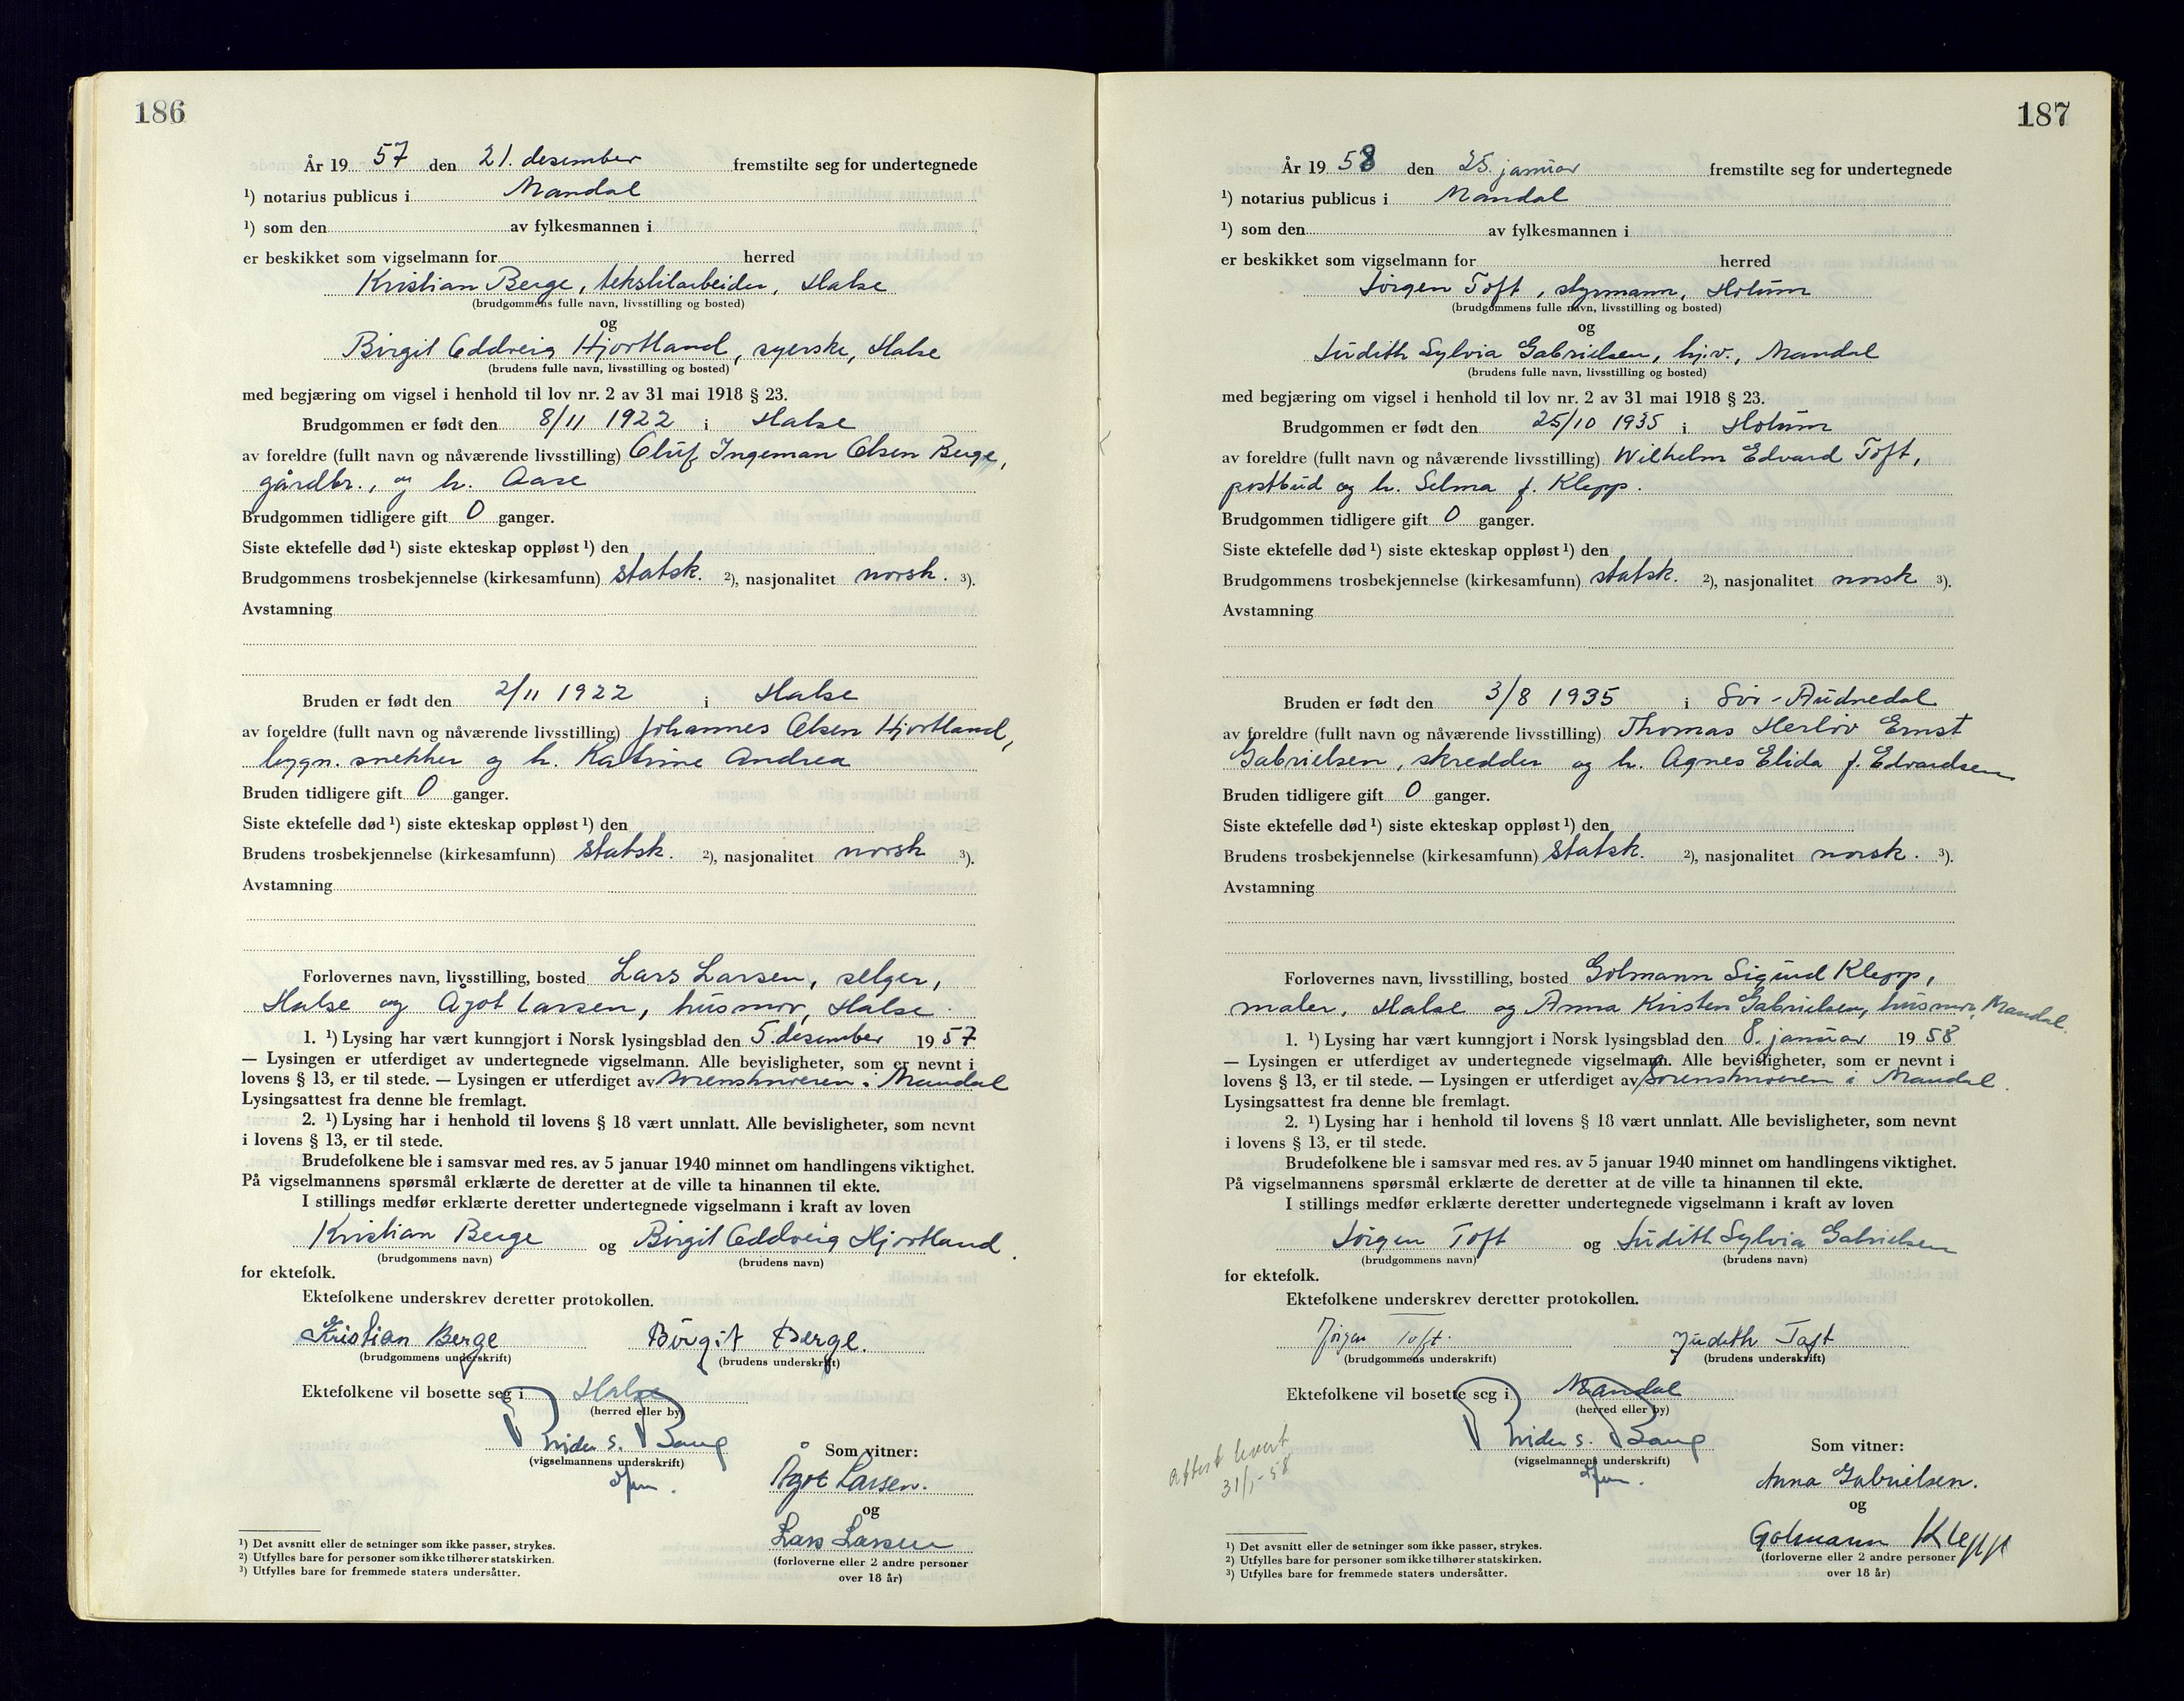 186
År 19 57 den 21. desember fremstilte seg for undertegnede
¹) notarius publicus i Mandal
¹) som den av fylkesmannen i
er beskikket som vigselmann for herred
Kristian Berge, tekstilarbeider, Halse
(brudgommens fulle navn, livsstilling og bosted)
og
Birgit Oddveig Hjortland, syerske, Halse
(brudens fulle navn, livsstilling og bosted)
med begjæring om vigsel i henhold til lov nr. 2 av 31 mai 1918 § 23.
Brudgommen er født den 8/11 1922 i Halse
av foreldre (fullt navn og nåværende livsstilling) Oluf Ingeman Olsen Berge,
gårdbr., og h. Aase
Brudgommen tidligere gift 0 ganger.
Siste ektefelle død ¹) siste ekteskap oppløst ¹) den
Brudgommens trosbekjennelse (kirkesamfunn) statsk. ²), nasjonalitet norsk. ³).
Avstamning
Bruden er født den 2/11 1922 i Halse
av foreldre (fullt navn og nåværende livsstilling) Johannes Olsen Hjortland,
bygn. snekker og h. Katrine Andrea
Bruden tidligere gift 0 ganger.
Siste ektefelle død ¹) siste ekteskap oppløst ¹) den
Brudens trosbekjennelse (kirkesamfunn) statsk. ²), nasjonalitet norsk ³).
Avstamning
Forlovernes navn, livsstilling, bosted Lars Larsen, selger,
Halse og Ågot Larsen, husmor, Halse.
1. ¹) Lysing har vært kunngjort i Norsk lysingsblad den 5. desember 19 57
— Lysingen er utferdiget av undertegnede vigselmann. Alle bevisligheter, som er nevnt i
lovens § 13, er til stede. — Lysingen er utferdiget av sorenskriveren i Mandal
Lysingsattest fra denne ble fremlagt.
2. ¹) Lysing har i henhold til lovens § 18 vært unnlatt. Alle bevisligheter, som nevnt
i lovens § 13, er til stede.
Brudefolkene ble i samsvar med res. av 5 januar 1940 minnet om handlingens viktighet.
På vigselmannens spørsmål erklærte de deretter at de ville ta hinannen til ekte.
I stillings medfør erklærte deretter undertegnede vigselmann i kraft av loven
Kristian Berge og Birgit Oddveig Hjortland.
(brudgommens navn) (brudens navn)
for ektefolk.
Ektefolkene underskrev deretter protokollen.
Kristian Berge Birgit Berge.
(brudgommens underskrift) (brudens underskrift)
Ektefolkene vil bosette seg i Halse
(herred eller by)
(vigselmannens underskrift)
Som vitner:
Ågot Larsen.
og
Lars Larsen
(forloverne eller 2 andre personer
over 18 år)
¹) Det avsnitt eller de setninger som ikke passer, strykes.
²) Utfylles bare for personer som ikke tilhører statskirken.
³) Utfylles bare for fremmede staters undersåtter.
187
År 19 58 den 25. januar fremstilte seg for undertegnede
¹) notarius publicus i Mandal
¹) som den av fylkesmannen i
er beskikket som vigselmann for herred
Jörgen Toft, styrmann, Holum
(brudgommens fulle navn, livsstilling og bosted)
og
Judith Sylvia Gabrielsen, hj.v., Mandal
(brudens fulle navn, livsstilling og bosted)
med begjæring om vigsel i henhold til lov nr. 2 av 31 mai 1918 § 23.
Brudgommen er født den 25/10 1935 i Holum
av foreldre (fullt navn og nåværende livsstilling) Wilhelm Edvard Toft,
postbud og h. Selma f. Klepp.
Brudgommen tidligere gift 0 ganger.
Siste ektefelle død ¹) siste ekteskap oppløst ¹) den
Brudgommens trosbekjennelse (kirkesamfunn) statsk. ²), nasjonalitet norsk ³).
Avstamning
Bruden er født den 3/8 1935 i Sör-Audnedal
av foreldre (fullt navn og nåværende livsstilling) Thomas Herlöv Ernst
Gabrielsen, skredder og h. Agnes Elida f. Edvardsen
Bruden tidligere gift 0 ganger.
Siste ektefelle død ¹) siste ekteskap oppløst ¹) den
Brudens trosbekjennelse (kirkesamfunn) statsk. ²), nasjonalitet norsk. ³).
Avstamning
Forlovernes navn, livsstilling, bosted Golmann Sigurd Klepp,
maler, Halse og Anna Kirsten Gabrielsen, husmor, Mandal.
1. ¹) Lysing har vært kunngjort i Norsk lysingsblad den 8. januar 19 58
— Lysingen er utferdiget av undertegnede vigselmann. Alle bevisligheter, som er nevnt i
lovens § 13, er til stede. — Lysingen er utferdiget av sorenskriveren i Mandal.
Lysingsattest fra denne ble fremlagt.
2. ¹) Lysing har i henhold til lovens § 18 vært unnlatt. Alle bevisligheter, som nevnt
i lovens § 13, er til stede.
Brudefolkene ble i samsvar med res. av 5 januar 1940 minnet om handlingens viktighet.
På vigselmannens spørsmål erklærte de deretter at de ville ta hinannen til ekte.
I stillings medfør erklærte deretter undertegnede vigselmann i kraft av loven
Jörgen Toft og Judith Sylvia Gabrielsen
(brudgommens navn) (brudens navn)
for ektefolk.
Ektefolkene underskrev deretter protokollen.
Jörgen Toft. Judith Toft
(brudgommens underskrift) (brudens underskrift)
Ektefolkene vil bosette seg i Mandal
(herred eller by)
(vigselmannens underskrift)
attest levert
31/1-58
Som vitner:
Anna Gabrielsen.
og
Golmann Klepp
(forloverne eller 2 andre personer
over 18 år)
¹) Det avsnitt eller de setninger som ikke passer, strykes.
²) Utfylles bare for personer som ikke tilhører statskirken.
³) Utfylles bare for fremmede staters undersåtter.